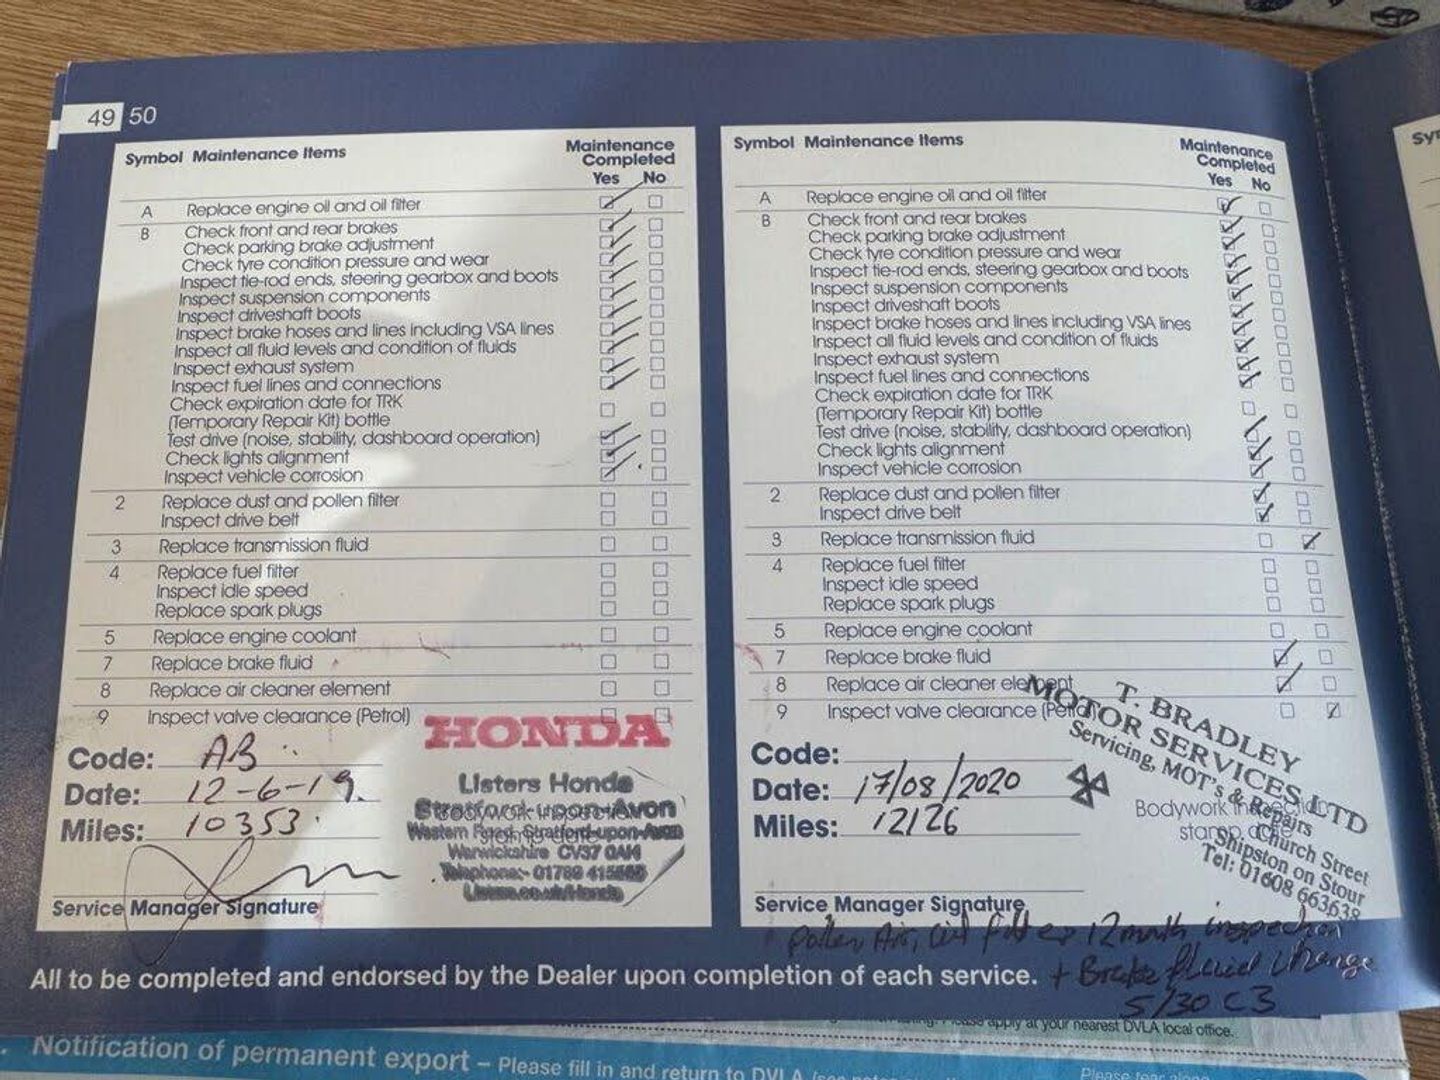 49 50
Symbol Maintenance Items Maintenance Completed
Yes No
A Replace engine oil and oil filter
B Check front and rear brakes
Check parking brake adjustment
Check tyre condition pressure and wear
Inspect tie-rod ends, steering gearbox and boots
Inspect suspension components
Inspect driveshaft boots
Inspect brake hoses and lines including VSA lines
Inspect all fluid levels and condition of fluids
Inspect exhaust system
Inspect fuel lines and connections
Check expiration date for TRK
(Temporary Repair Kit) bottle
Test drive (noise, stability, dashboard operation)
Check lights alignment
Inspect vehicle corrosion
2 Replace dust and pollen filter
Inspect drive belt
3 Replace transmission fluid
4 Replace fuel filter
Inspect idle speed
Replace spark plugs
5 Replace engine coolant
7 Replace brake fluid
8 Replace air cleaner element
9 Inspect valve clearance (Petrol)
Code: AB
Date: 12-6-19.
Miles: 10353
HONDA
Listers Honda
Stratford-upon-Avon
Western Road, Stratford-upon-Avon
Warwickshire CV37 0AH
Telephone:- 01789 41
Listers.co.uk/Honda
Service Manager Signature
Symbol Maintenance Items Maintenance Completed
Yes No
A Replace engine oil and oil filter
B Check front and rear brakes
Check parking brake adjustment
Check tyre condition pressure and wear
Inspect tie-rod ends, steering gearbox and boots
Inspect suspension components
Inspect driveshaft boots
Inspect brake hoses and lines including VSA lines
Inspect all fluid levels and condition of fluids
Inspect exhaust system
Inspect fuel lines and connections
Check expiration date for TRK
(Temporary Repair Kit) bottle
Test drive (noise, stability, dashboard operation)
Check lights alignment
Inspect vehicle corrosion
2 Replace dust and pollen filter
Inspect drive belt
3 Replace transmission fluid
4 Replace fuel filter
Inspect idle speed
Replace spark plugs
5 Replace engine coolant
7 Replace brake fluid
8 Replace air cleaner element
9 Inspect valve clearance (Petrol)
Code:
Date: 17/08/2020
Miles: 12126
T. BRADLEY
MOTOR SERVICES LTD
Servicing, MOT's & Repairs
Church Street
Shipston on Stour
Tel: 01608 663638
Bodywork
stamp
Service Manager Signature
Pollen Air, oil filter 12 month inspection
+ Brake fluid change
5/30 C3
All to be completed and endorsed by the Dealer upon completion of each service.
apply at your nearest DVLA local office.
Notification of permanent export – Please fill in and return to DVLA
Please tear along
Sy